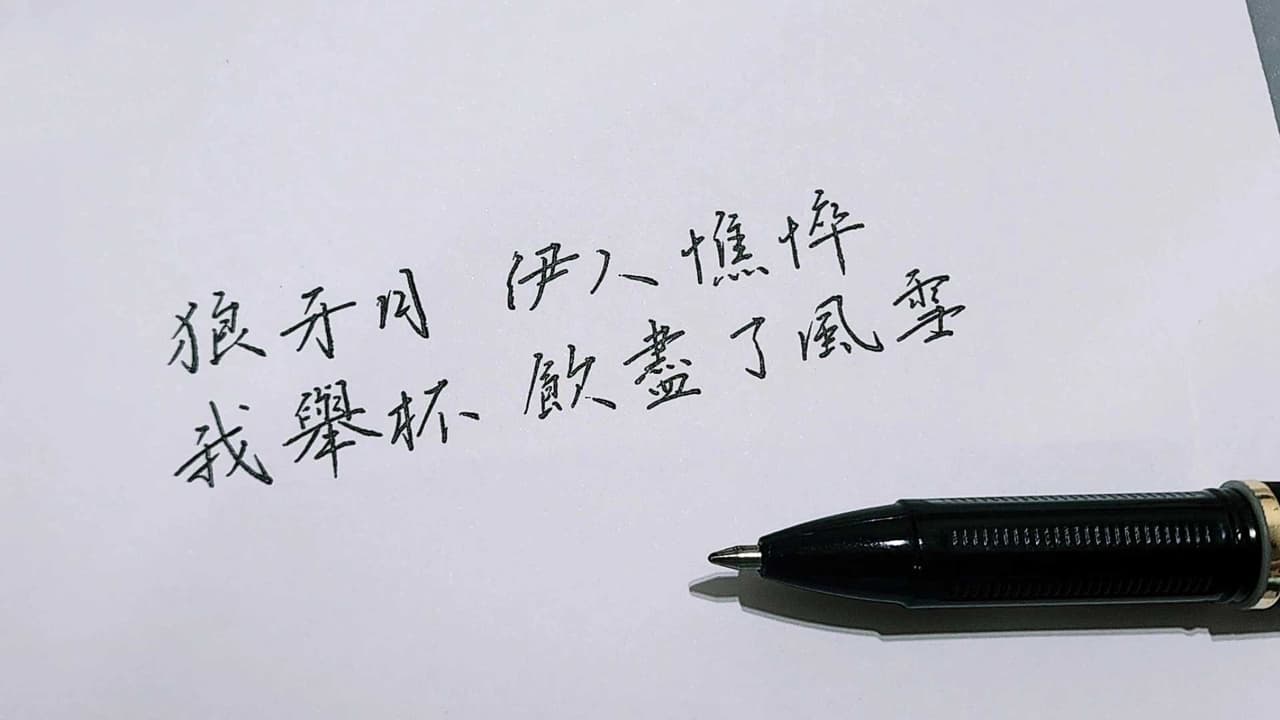 狼牙月 伊人憔悴
我舉杯 飲盡了風雪